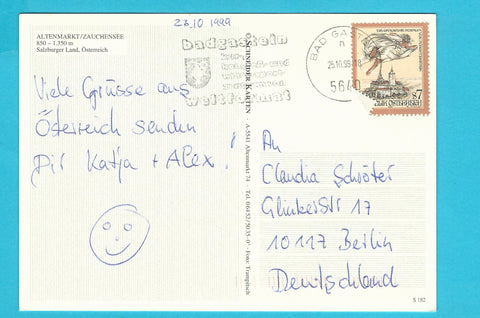 23.10 1999
ALTENMARKT/ZAUCHENSEE
850 – 1.350 m
Salzburger Land, Österreich
Viele Grüsse aus
Österreich senden
Dir Katja + Alex!
© SCHNEIDER KARTEN · A-5541 Altenmarkt 74 · Tel. 06452/5035-0 · Foto: Trumpitsch
badgastein
kur-
und
weltformat
BAD GAST
n
25.10.99-18
5640
S 7
An
Claudia Schröter
Glinkerstr 17
10117 Berlin
Deutschland
S 182